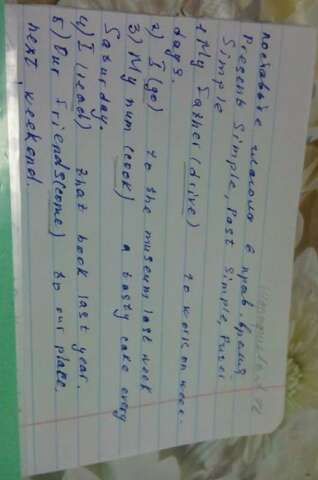 поставьте глаголы в прав. время
Present Simple, Past Simple, Futer
Simple
1 My Father (drive) to work on week-
days.
2) I (go) to the museum last week
3) My mum (cook) a tasty cake every
Saturday.
4) I (read) that book last year.
5) Our Friends (come) to our place
next weekend.